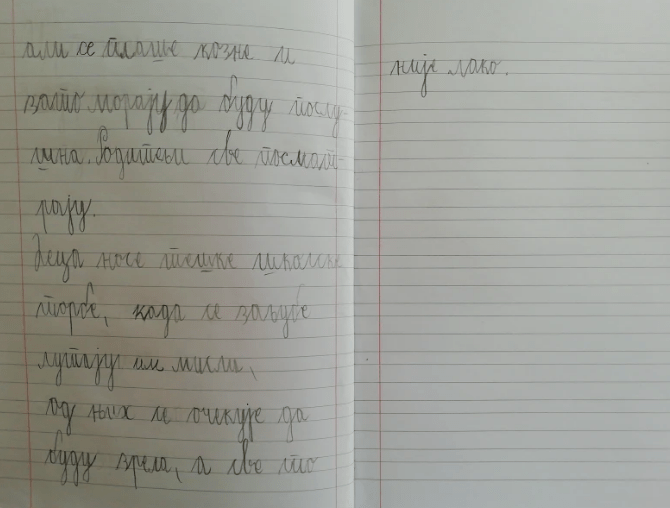 али се плаше казне и
зато морају да буду послу-
шна. Родитељи све посмат-
рају.
Деца носе тешке школске
торбе, када се заљубе
лутају им мисли,
од њих се очекује да
буду зрела, а све то
није лако.